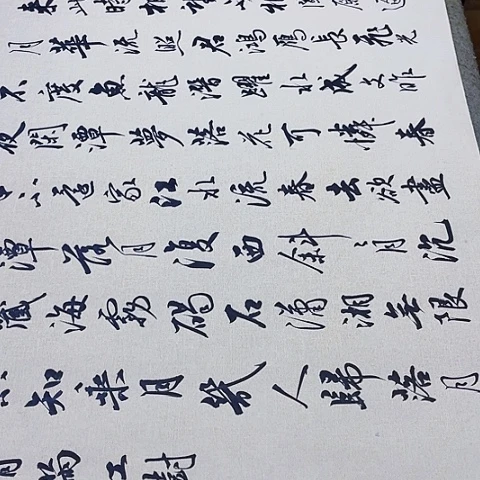 此時相望不相聞願逐
月華流照君鴻雁長飛光
不度魚龍潛躍水成文昨
夜閑潭夢落花可憐春
不還家江水流春去欲盡
潭落月復西斜〻月沉
藏海霧碣石瀟湘無限
不知乘月幾人歸落月
滿江樹